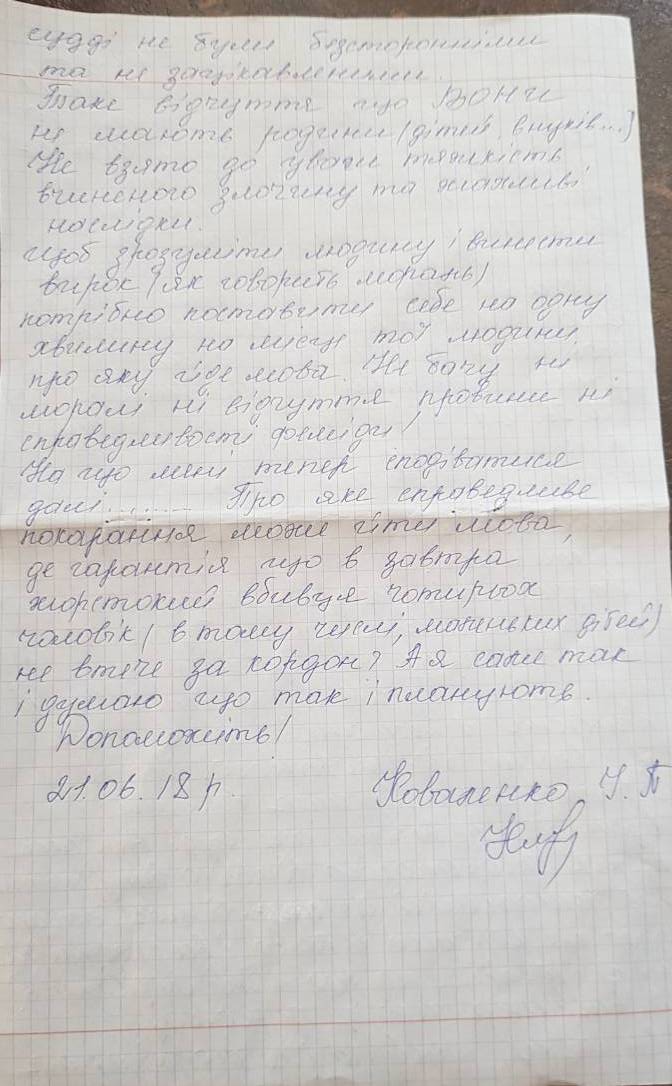 судді не були безсторонніми
та не зацікавленими.
Таке відчуття що ВОНИ
не мають родини (дітей, внуків...)
Не взято до уваги тяжкість
вчиненого злочину та жахливі
наслідки.
Щоб зрозуміти людину і винести
вирок (як говорить мораль)
потрібно поставити себе на одну
хвилину на місце тої людини,
про яку йде мова. Не бачу ні
моралі ні відчуття провини ні
справедливості феміди!
На що мені тепер сподіватися
далі........ Про яке справедливе
покарання може йти мова,
де гарантія що в завтра
жорстокий вбивця чотирьох
чоловік (в тому числі, маленьких дітей)
не втече за кордон? А я саме так
і думаю що так і планують.
Допоможіть!
21.06.18 р. Коваленко